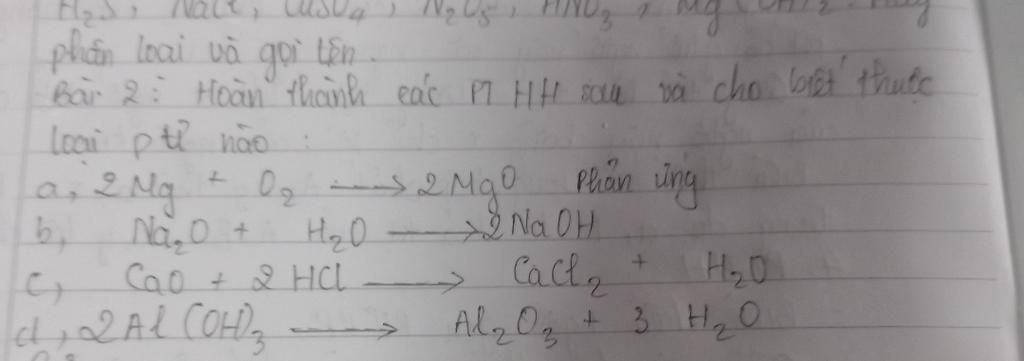 H₂S, NaCl, CuSO₄, N₂O₅, HNO₃, Mg(OH)₂. Hãy
phân loại và gọi tên.
Bài 2: Hoàn thành các PTHH sau và cho biết thuộc
loại pứ nào:
a, 2Mg + O₂ ⟶ 2MgO phản ứng
b, Na₂O + H₂O ⟶ 2NaOH
c, CaO + 2HCl ⟶ CaCl₂ + H₂O
d, 2Al(OH)₃ ⟶ Al₂O₃ + 3 H₂O